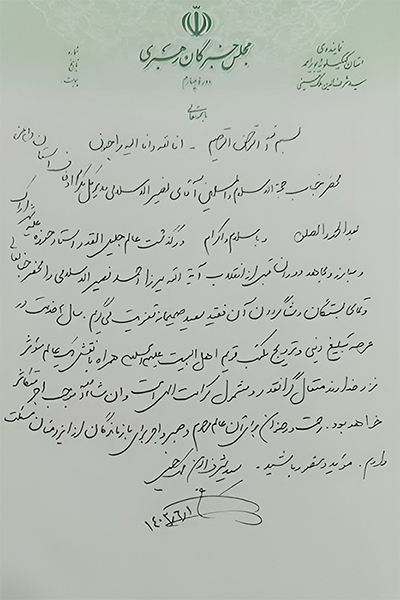 مجلس خبرگان رهبری
دوره چهارم
نمایندهٔ
استان کهگیلویه و بویراحمد
سید شرف الدین ملک حسینی
شماره
تاریخ
پیوست
باسمه تعالی
بسم الله الرحمن الرحیم - انا لله و انا الیه راجعون
محضر جناب حجة الاسلام والمسلمین آقای نصیر الاسلامی مدیر کل
بعد الحمد والصلاة و با سلام و اکرام درگذشت عالم جلیل القدر استاد حوزه علمیه
و مبارز و مجاهد دوران قبل از انقلاب آیة الله میرزا احمد نصیر الاسلامی را محضر جنابعالی
و تمامی بستگان و شاگردان آن فقید سعید صمیمانه تسلیت می گویم. سال ها خدمت در
عرصه تبلیغ دینی و ترویج مکتب قویم اهل البیت علیهم السلام همراه با نقش عالم مؤثر
نزد خداوند متعال گرانقدر و مشمول کرامت الهی است و ان شاءالله موجب اجر متکاثر
خواهد بود. رحمت و رضوان برای آن عالم مرحوم و صبر و اجر برای بازماندگان از ایزد منان مسئلت
داریم. مؤید و مظفر باشید. سید شرف الدین ملک حسینی
۱۴۰۳/۶/۱